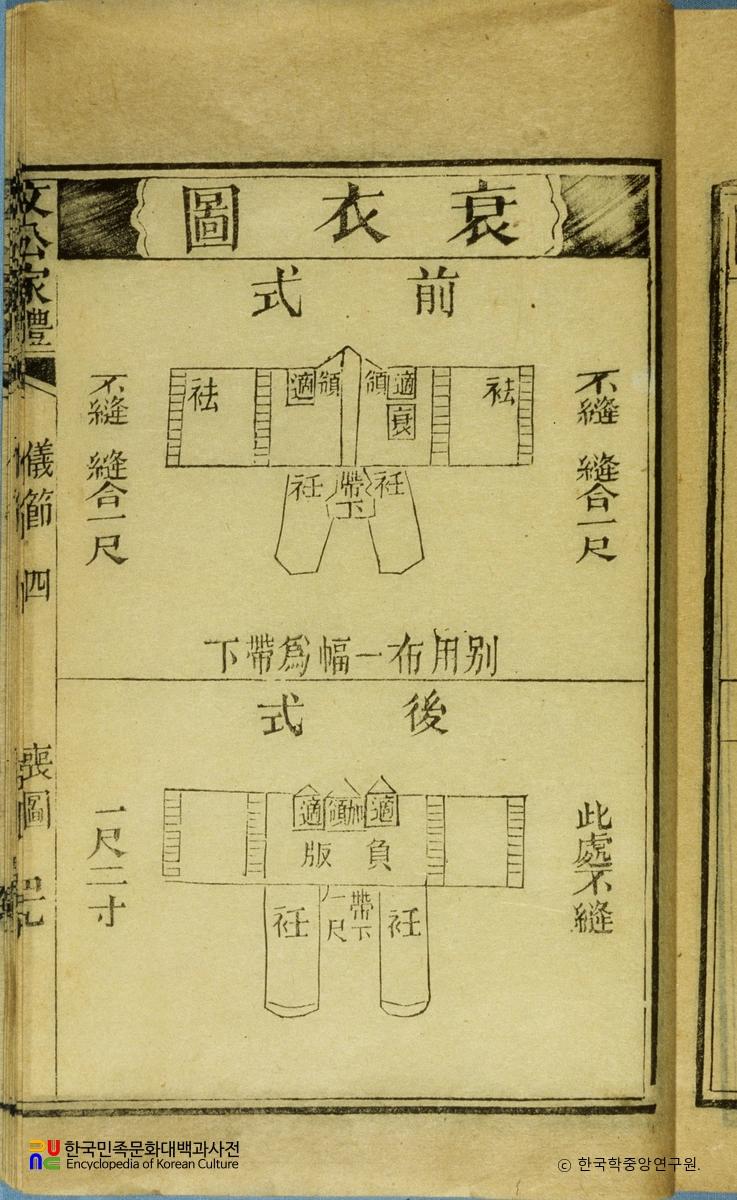 衰衣圖
前式
不縫 縫合一尺
祛
適
領
領
適
衰
祛
不縫 縫合一尺
衽
帶下
衽
别用布一幅為帶下
後式
此處不縫
適
領
適
負版
一尺二寸
衽
帶下一尺
衽
文公家禮
儀節 四
喪圖
한국민족문화대백과사전
Encyclopedia of Korean Culture
© 한국학중앙연구원.